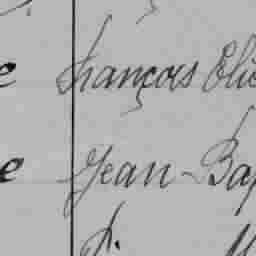 e françois Eli
e Jean-Bap